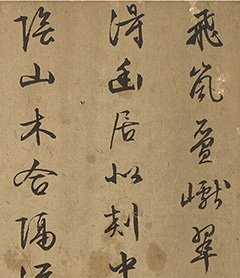 飛嵐疊巘翠
得幽居似剡中
陰山木合隔